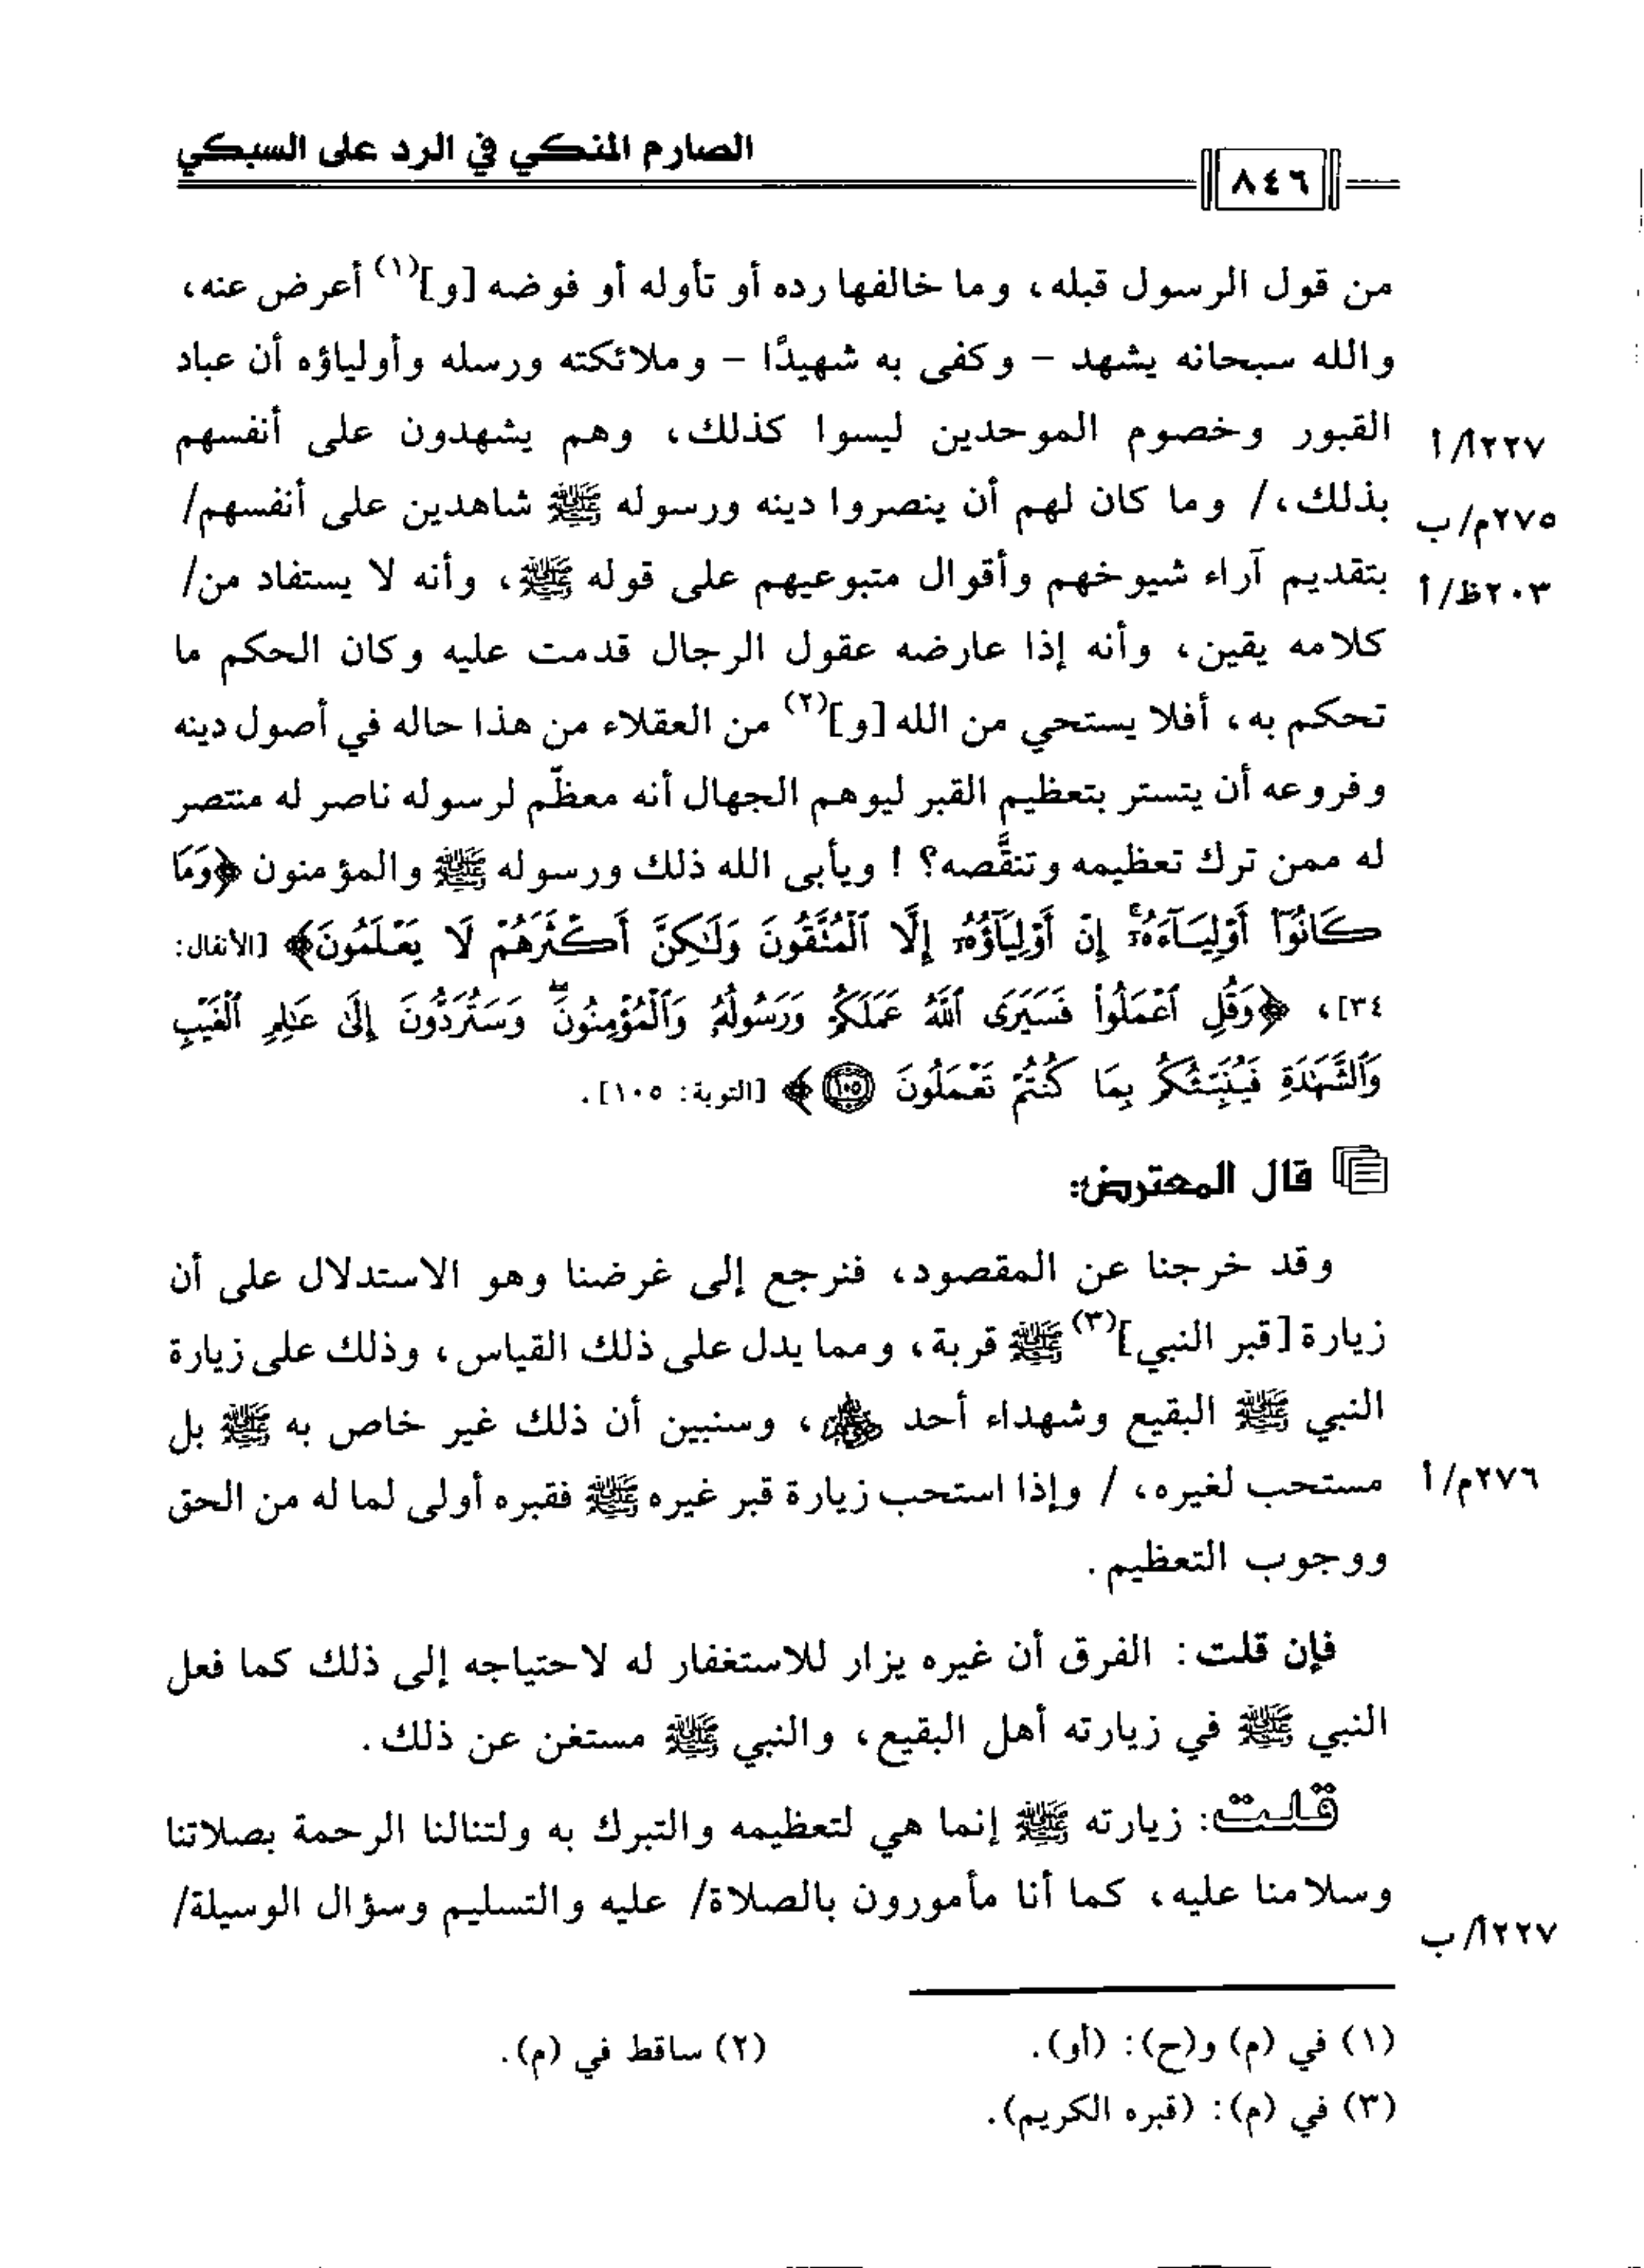 الصارم المنكي في الرد على السبكي
٨٤٦
من قول الرسول قبله، وما خالفها رده أو تأوله أو فوضه [و](١) أعرض عنه،
والله سبحانه يشهد - وكفى به شهيدًا - وملائكته ورسله وأولياؤه أن عباد
القبور وخصوم الموحدين ليسوا كذلك، وهم يشهدون على أنفسهم
٢٢٧أ/أ
بذلك،/ وما كان لهم أن ينصروا دينه ورسوله ﷺ شاهدين على أنفسهم/
٢٧٥م/ب
بتقديم آراء شيوخهم وأقوال متبوعيهم على قوله ﷺ، وأنه لا يستفاد من/
٢٠٣ظ/أ
كلامه يقين، وأنه إذا عارضه عقول الرجال قدمت عليه وكان الحكم ما
تحكم به، أفلا يستحي من الله [و](٢) من العقلاء من هذا حاله في أصول دينه
وفروعه أن يتستر بتعظيم القبر ليوهم الجهال أنه معظّم لرسوله ناصر له منتصر
له ممن ترك تعظيمه وتنقَّصه؟! ويأبى الله ذلك ورسوله ﷺ والمؤمنون ﴿وَمَا
كَانُوٓا۟ أَوْلِيَآءَهُۥٓ إِنْ أَوْلِيَآؤُهُۥٓ إِلَّا ٱلْمُتَّقُونَ وَلَٰكِنَّ أَكْثَرَهُمْ لَا يَعْلَمُونَ﴾ [الأنفال:
٣٤]، ﴿وَقُلِ ٱعْمَلُوا۟ فَسَيَرَى ٱللَّهُ عَمَلَكُمْ وَرَسُولُهُۥ وَٱلْمُؤْمِنُونَ ۖ وَسَتُرَدُّونَ إِلَىٰ عَٰلِمِ ٱلْغَيْبِ
وَٱلشَّهَٰدَةِ فَيُنَبِّئُكُم بِمَا كُنتُمْ تَعْمَلُونَ ١٠٥﴾ [التوبة: ١٠٥].
قال المعترض:
وقد خرجنا عن المقصود، فنرجع إلى غرضنا وهو الاستدلال على أن
زيارة [قبر النبي](٣) ﷺ قربة، ومما يدل على ذلك القياس، وذلك على زيارة
النبي ﷺ البقيع وشهداء أحد ﵃، وسنبين أن ذلك غير خاص به ﷺ بل
مستحب لغيره، / وإذا استحب زيارة قبر غيره ﷺ فقبره أولى لما له من الحق
٢٧٦م/أ
ووجوب التعظيم.
فإن قلت: الفرق أن غيره يزار للاستغفار له لاحتياجه إلى ذلك كما فعل
النبي ﷺ في زيارته أهل البقيع، والنبي ﷺ مستغن عن ذلك.
قلت: زيارته ﷺ إنما هي لتعظيمه والتبرك به ولتنالنا الرحمة بصلاتنا
وسلامنا عليه، كما أنا مأمورون بالصلاة/ عليه والتسليم وسؤال الوسيلة/
٢٢٧أ/ب
(١) في (م) و(ح): (أو).
(٢) ساقط في (م).
(٣) في (م): (قبره الكريم).